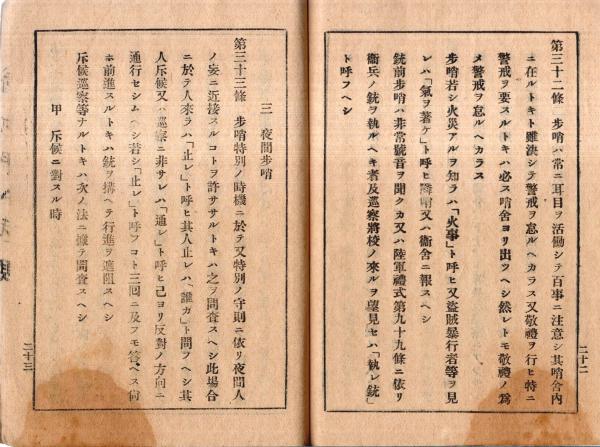 第三十二條　步哨ハ常ニ耳目ヲ活働シテ百事ニ注意シ其哨舍內
ニ在ルトキト雖決シテ警戒ヲ怠ルヘカラス又敬禮ヲ行ヒ特ニ
警戒ヲ要スルトキハ必ス哨舍ヨリ出ツヘシ然レトモ敬禮ノ爲
メ警戒ヲ怠ルヘカラス
步哨若シ火災アルヲ知ラハ「火事」ト呼ヒ又盜賊暴行者等ヲ見
レハ「氣ヲ著ケ」ト呼ヒ隣哨又ハ衞舍ニ報スヘシ
銃前步哨ハ非常號音ヲ聞クカ又ハ陸軍禮式第九十九條ニ依リ
衞兵ノ銃ヲ執ルヘキ者及巡察將校ノ來ルヲ望見セハ「執レ銃」
ト呼フヘシ
二十二
三　夜間步哨
第三十三條　步哨特別ノ時機ニ於テ又特別ノ守則ニ依リ夜間人
ノ妄ニ近接スルコトヲ許ササルトキハ之ヲ問査スヘシ此場合
ニ於テ人來ラハ「止レ」ト呼ヒ其人止レハ「誰カ」ト問フヘシ其
人斥候又ハ巡察ニ非サレハ「通レ」ト呼ヒ己ヨリ反對ノ方向ニ
通行セシムヘシ若シ「止レ」ト呼フコト三回ニ及フモ答ヘス尙
ホ前進スルトキハ銃ヲ構ヘテ行進ヲ遮阻スヘシ
斥候巡察等ナルトキハ次ノ法ニ據テ問査スヘシ
甲　斥候ニ對スル時
二十三